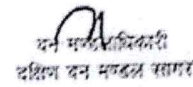 वन मण्डलाधिकारी
दक्षिण वन मण्डल सागर